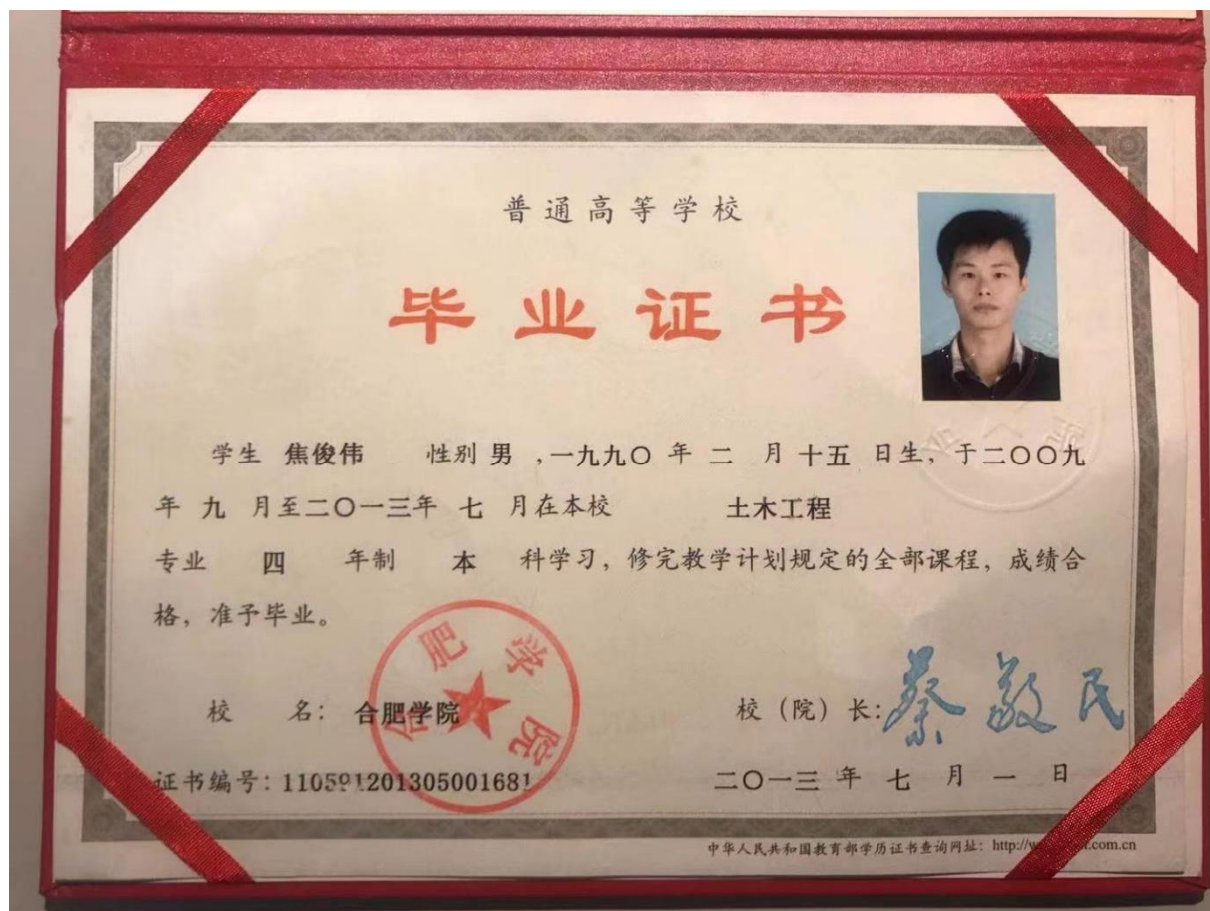 普通高等学校
毕业证书
学生 焦俊伟 性别 男 ,一九九〇 年 二 月 十五 日生, 于二〇〇九
年 九 月至二〇一三年 七 月在本校 土木工程
专业 四 年制 本 科学习, 修完教学计划规定的全部课程, 成绩合
格, 准予毕业。
合肥学院
校 名: 合肥学院
校 (院) 长: 蔡敬民
证书编号: 110591201305001681
二〇一三 年 七 月 一 日
中华人民共和国教育部学历证书查询网址: http://w .com.cn